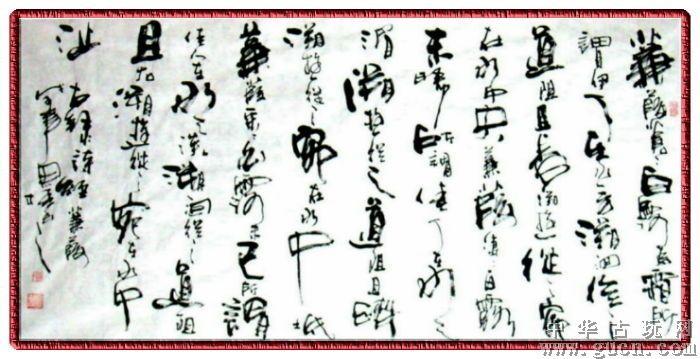 蒹葭蒼〻白露為霜所
謂伊人在水一方溯洄從之
道阻且長溯遊從〻宛
在水中央蒹葭萋〻白露
未晞所謂人在水之
湄溯從之道阻且躋
溯游從之宛在水中坻
蒹葭采〻白露未已所謂
人在水之涘溯洄從之道阻
且右溯游從之宛在水中
沚
右錄詩經蒹葭
中华古玩网
www.gucn.com